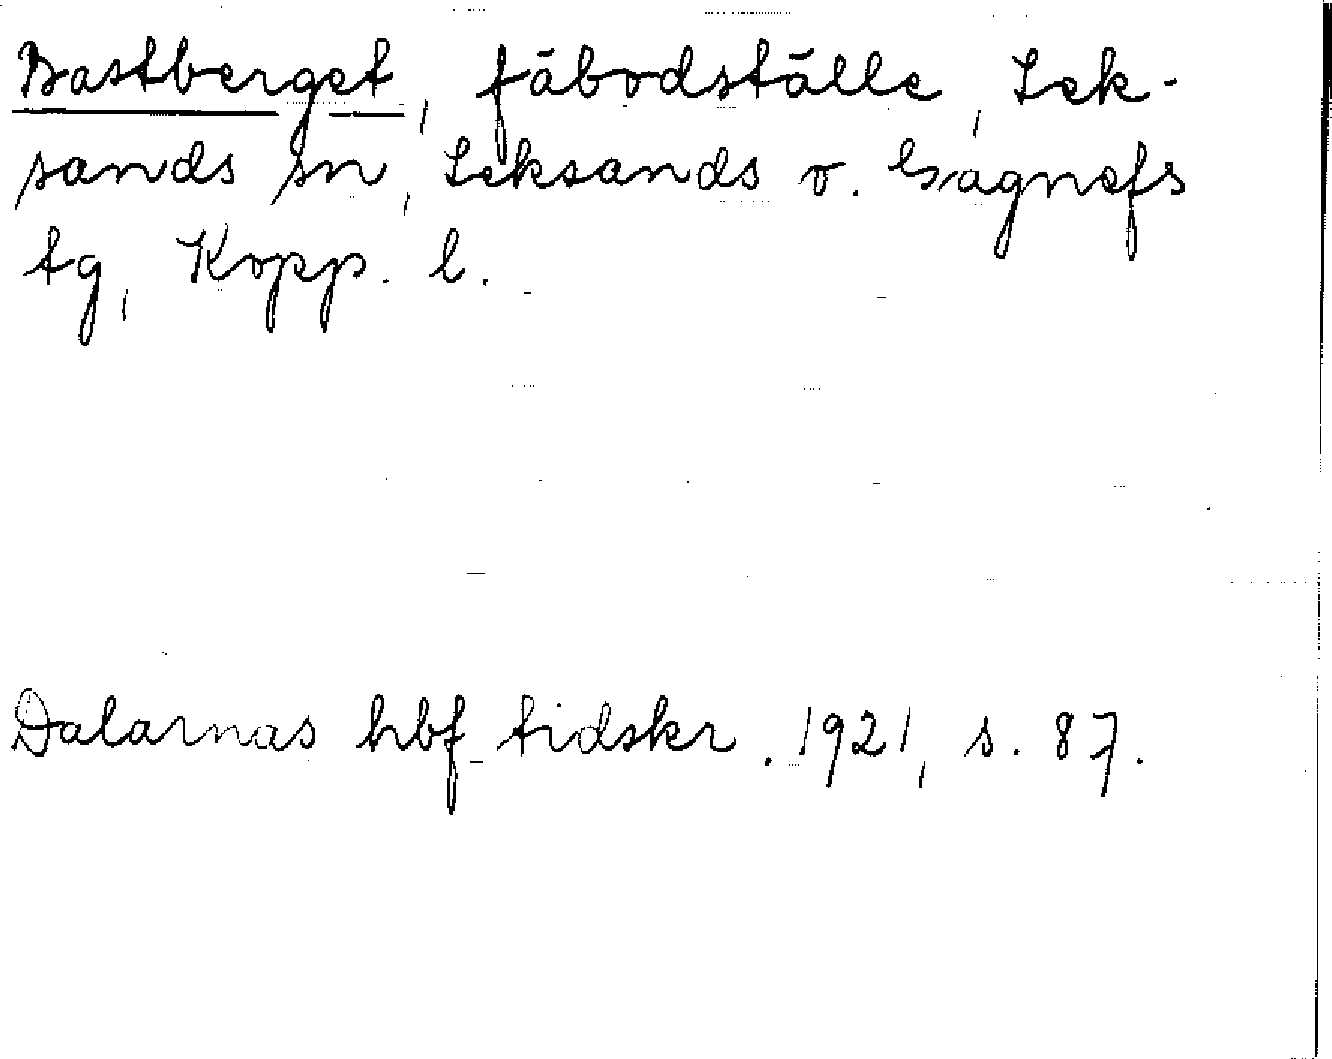 Bastberget, fäbodställe, Lek-
sands sn, Leksands o. Gagnefs
tg, Kopp. l.
Dalarnas hbf tidskr. 1921, s. 87.